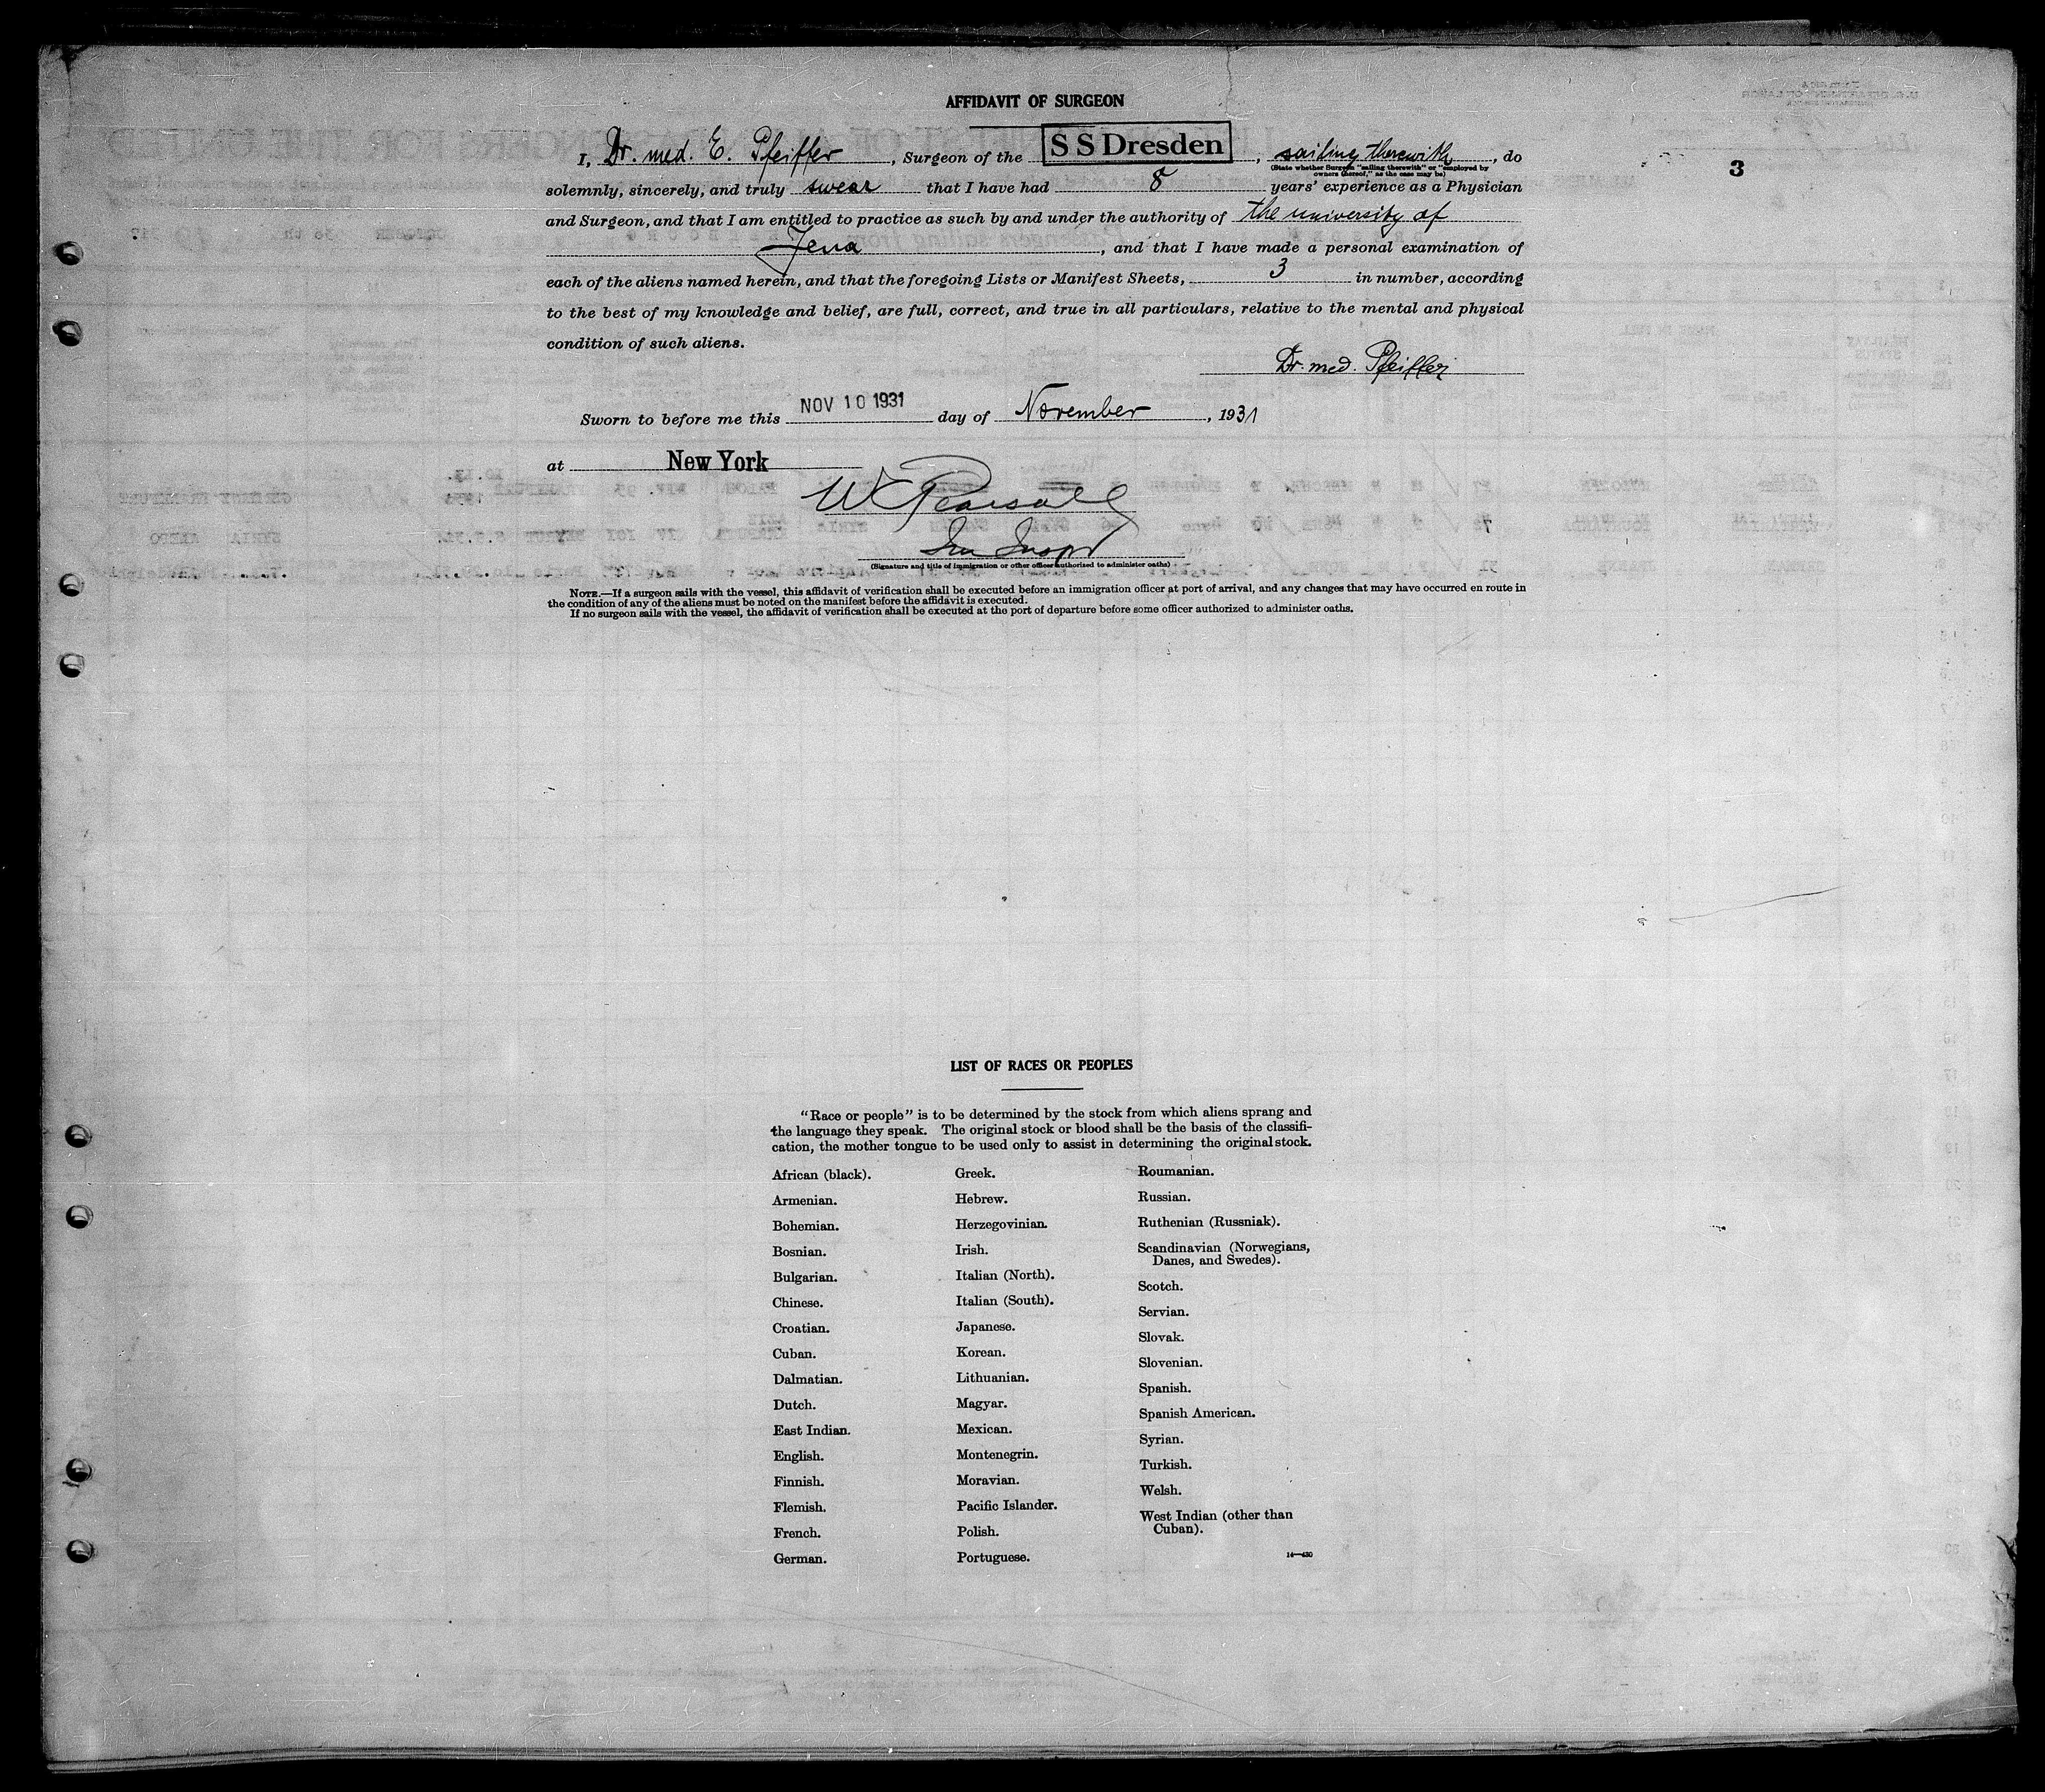 AFFIDAVIT OF SURGEON
I, Dr. med. E. Pfeiffer, Surgeon of the SS Dresden, sailing therewith, do
(State whether Surgeon "sailing therewith" or "employed by
owners thereof," as the case may be)
3
solemnly, sincerely, and truly swear that I have had 8 years' experience as a Physician
and Surgeon, and that I am entitled to practice as such by and under the authority of the university of
Jena, and that I have made a personal examination of
each of the aliens named herein, and that the foregoing Lists or Manifest Sheets, 3 in number, according
to the best of my knowledge and belief, are full, correct, and true in all particulars, relative to the mental and physical
condition of such aliens.
Dr. med. Pfeiffer
Sworn to before me this NOV 10 1931 day of November, 1931
at New York
W Pearsall
(Signature and title of immigration or other officer authorized to administer oaths)
NOTE.—If a surgeon sails with the vessel, this affidavit of verification shall be executed before an immigration officer at port of arrival, and any changes that may have occurred en route in
the condition of any of the aliens must be noted on the manifest before the affidavit is executed.
If no surgeon sails with the vessel, the affidavit of verification shall be executed at the port of departure before some officer authorized to administer oaths.
LIST OF RACES OR PEOPLES
"Race or people" is to be determined by the stock from which aliens sprang and
the language they speak. The original stock or blood shall be the basis of the classifi-
cation, the mother tongue to be used only to assist in determining the original stock.
African (black).
Armenian.
Bohemian.
Bosnian.
Bulgarian.
Chinese.
Croatian.
Cuban.
Dalmatian.
Dutch.
East Indian.
English.
Finnish.
Flemish.
French.
German.
Greek.
Hebrew.
Herzegovinian.
Irish.
Italian (North).
Italian (South).
Japanese.
Korean.
Lithuanian.
Magyar.
Mexican.
Montenegrin.
Moravian.
Pacific Islander.
Polish.
Portuguese.
Roumanian.
Russian.
Ruthenian (Russniak).
Scandinavian (Norwegians,
Danes, and Swedes).
Scotch.
Servian.
Slovak.
Slovenian.
Spanish.
Spanish American.
Syrian.
Turkish.
Welsh.
West Indian (other than
Cuban).
14—430